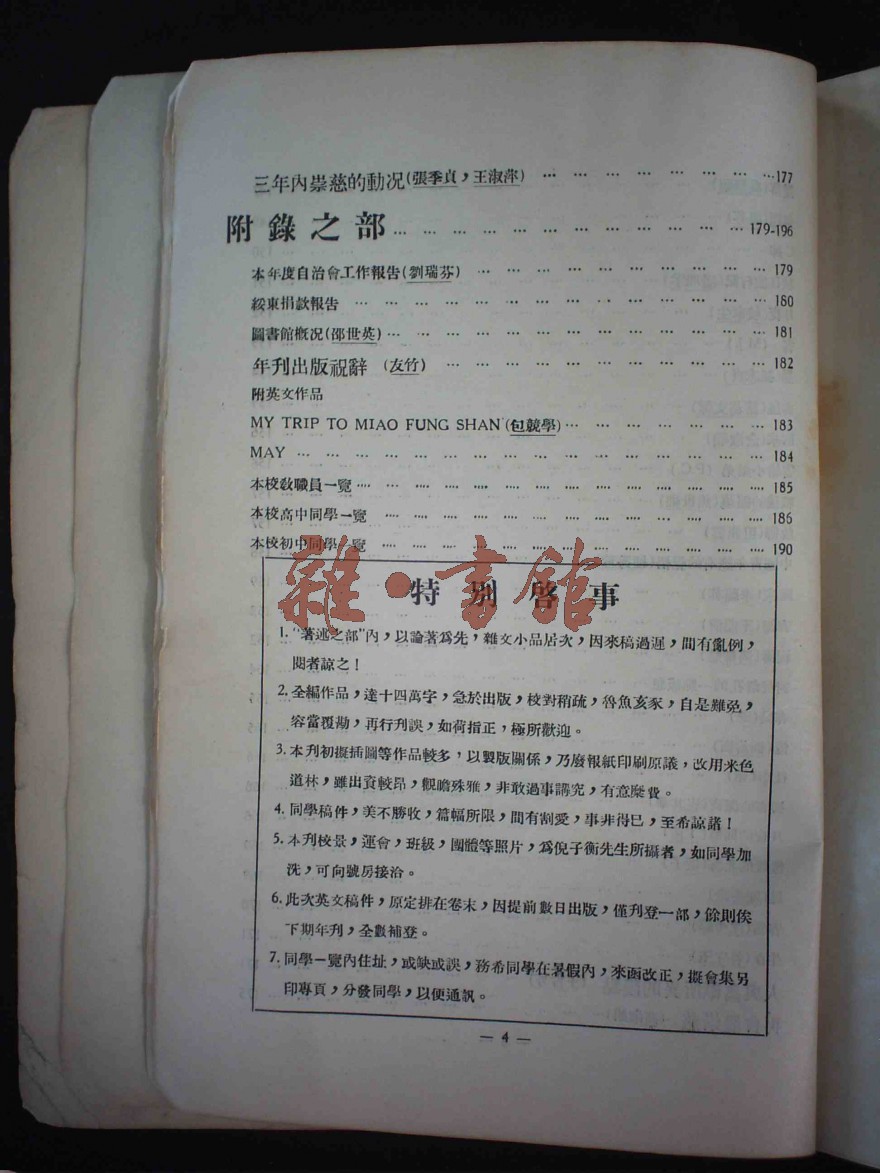 三年內崇慈的動况(張季貞，王淑萍) … … … … … … … … …177
附錄之部… … … … … … … … … … … … 179-196
本年度自治會工作報告(劉瑞芬) … … … … … … … … … … 179
綏東捐款報告 … … … … … … … … … … … … … … 180
圖書館概况(邵世英)… … … … … … … … … … … … … 181
年刋出版祝辭 (友竹) … … … … … … … … … … … 182
附英文作品
MY TRIP TO MIAO FUNG SHAN(包兢學)… … … … … … … 183
MAY … … … … … … … … … … … … … … … … 184
本校敎職員一覽… … … … … … … … … … … … … … 185
本校高中同學一覽 … … … … … … … … … … … … … 186
本校初中同學一覽 … … … … … … … … … … … … … 190
雜·書館
特別啓事
1. “著述之部”內，以論著爲先，雜文小品居次，因來稿過遲，間有亂例，
閱者諒之！
2. 全編作品，達十四萬字，急於出版，校對稍疏，魯魚亥豕，自是難免，
容當覆勘，再行刋誤，如荷指正，極所歡迎。
3. 本刋初擬插圖等作品較多，以製版關係，乃廢報紙印刷原議，改用米色
道林，雖出資較昂，觀瞻殊雅，非敢過事講究，有意糜費。
4. 同學稿件，美不勝收，篇幅所限，間有割愛，事非得已，至希諒諸！
5. 本刋校景，運會，班級，團體等照片，爲倪子衡先生所攝者，如同學加
洗，可向號房接洽。
6. 此次英文稿件，原定排在卷末，因提前數日出版，僅刋登一部，餘則俟
下期年刋，全數補登。
7. 同學一覽內住址，或缺或誤，務希同學在暑假內，來函改正，擬會集另
印專頁，分發同學，以便通訊。
— 4 —